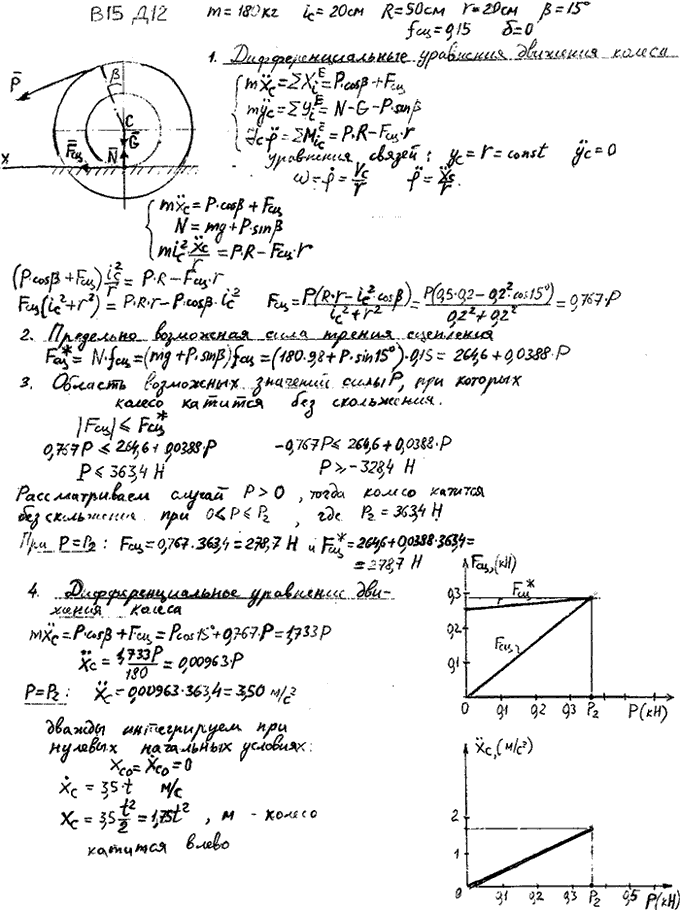 В15 Д12 m = 180кг i_c = 20см R = 50см r = 20см β = 15°
f_сц = 0,15 δ = 0
1. Дифференциальные уравнения движения колеса
mẍ_c = ΣX_i^E = P·cosβ + F_сц
mÿ_c = ΣY_i^E = N − G − P·sinβ
J_c φ̈ = ΣM_ic^E = P·R − F_сц·r
уравнения связей: y_c = r = const ÿ_c = 0
ω = φ̇ = V_c/r φ̈ = ẍ_c/r
P̄
β
C
Ḡ
x
F̄_сц
N̄
mẍ_c = P·cosβ + F_сц
N = mg + P·sinβ
m i_c² ẍ_c/r = P·R − F_сц·r
(P·cosβ + F_сц) i_c²/r = P·R − F_сц·r
F_сц(i_c² + r²) = P·R·r − P·cosβ·i_c² F_сц = P(R·r − i_c²·cosβ)/(i_c² + r²) = P(0,5·0,2 − 0,2²·cos15°)/(0,2² + 0,2²) = 0,767·P
2. Предельно возможная сила трения сцепления
F_сц* = N·f_сц = (mg + P·sinβ)f_сц = (180·9,8 + P·sin15°)·0,15 = 264,6 + 0,0388·P
3. Область возможных значений силы P, при которых
колесо катится без скольжения.
|F_сц| ≤ F_сц*
0,767P ≤ 264,6 + 0,0388·P −0,767P ≤ 264,6 + 0,0388·P
P ≤ 363,4 Н P ≥ −328,4 Н
Рассматриваем случай P > 0, тогда колесо катится
без скольжения при 0 ≤ P ≤ P₂, где P₂ = 363,4 Н
При P = P₂: F_сц = 0,767·363,4 = 278,7 Н и F_сц* = 264,6 + 0,0388·363,4 =
= 278,7 Н
4. Дифференциальное уравнение дви-
жения колеса
mẍ_c = P·cosβ + F_сц = P·cos15° + 0,767·P = 1,733P
ẍ_c = 1,733P/180 = 0,00963·P
P = P₂: ẍ_c = 0,00963·363,4 = 3,50 м/с²
дважды интегрируем при
нулевых начальных условиях:
x_c0 = ẋ_c0 = 0
ẋ_c = 3,5·t м/с
x_c = 3,5 t²/2 = 1,75t², м - колесо
катится влево
F_сц, (кН)
0,3
F_сц*
0,2
F_сц
0,1
0 0,1 0,2 0,3 P₂ P(кН)
ẍ_c, (м/с²)
2
1
0 0,1 0,2 0,3 P₂ 0,5 P(кН)